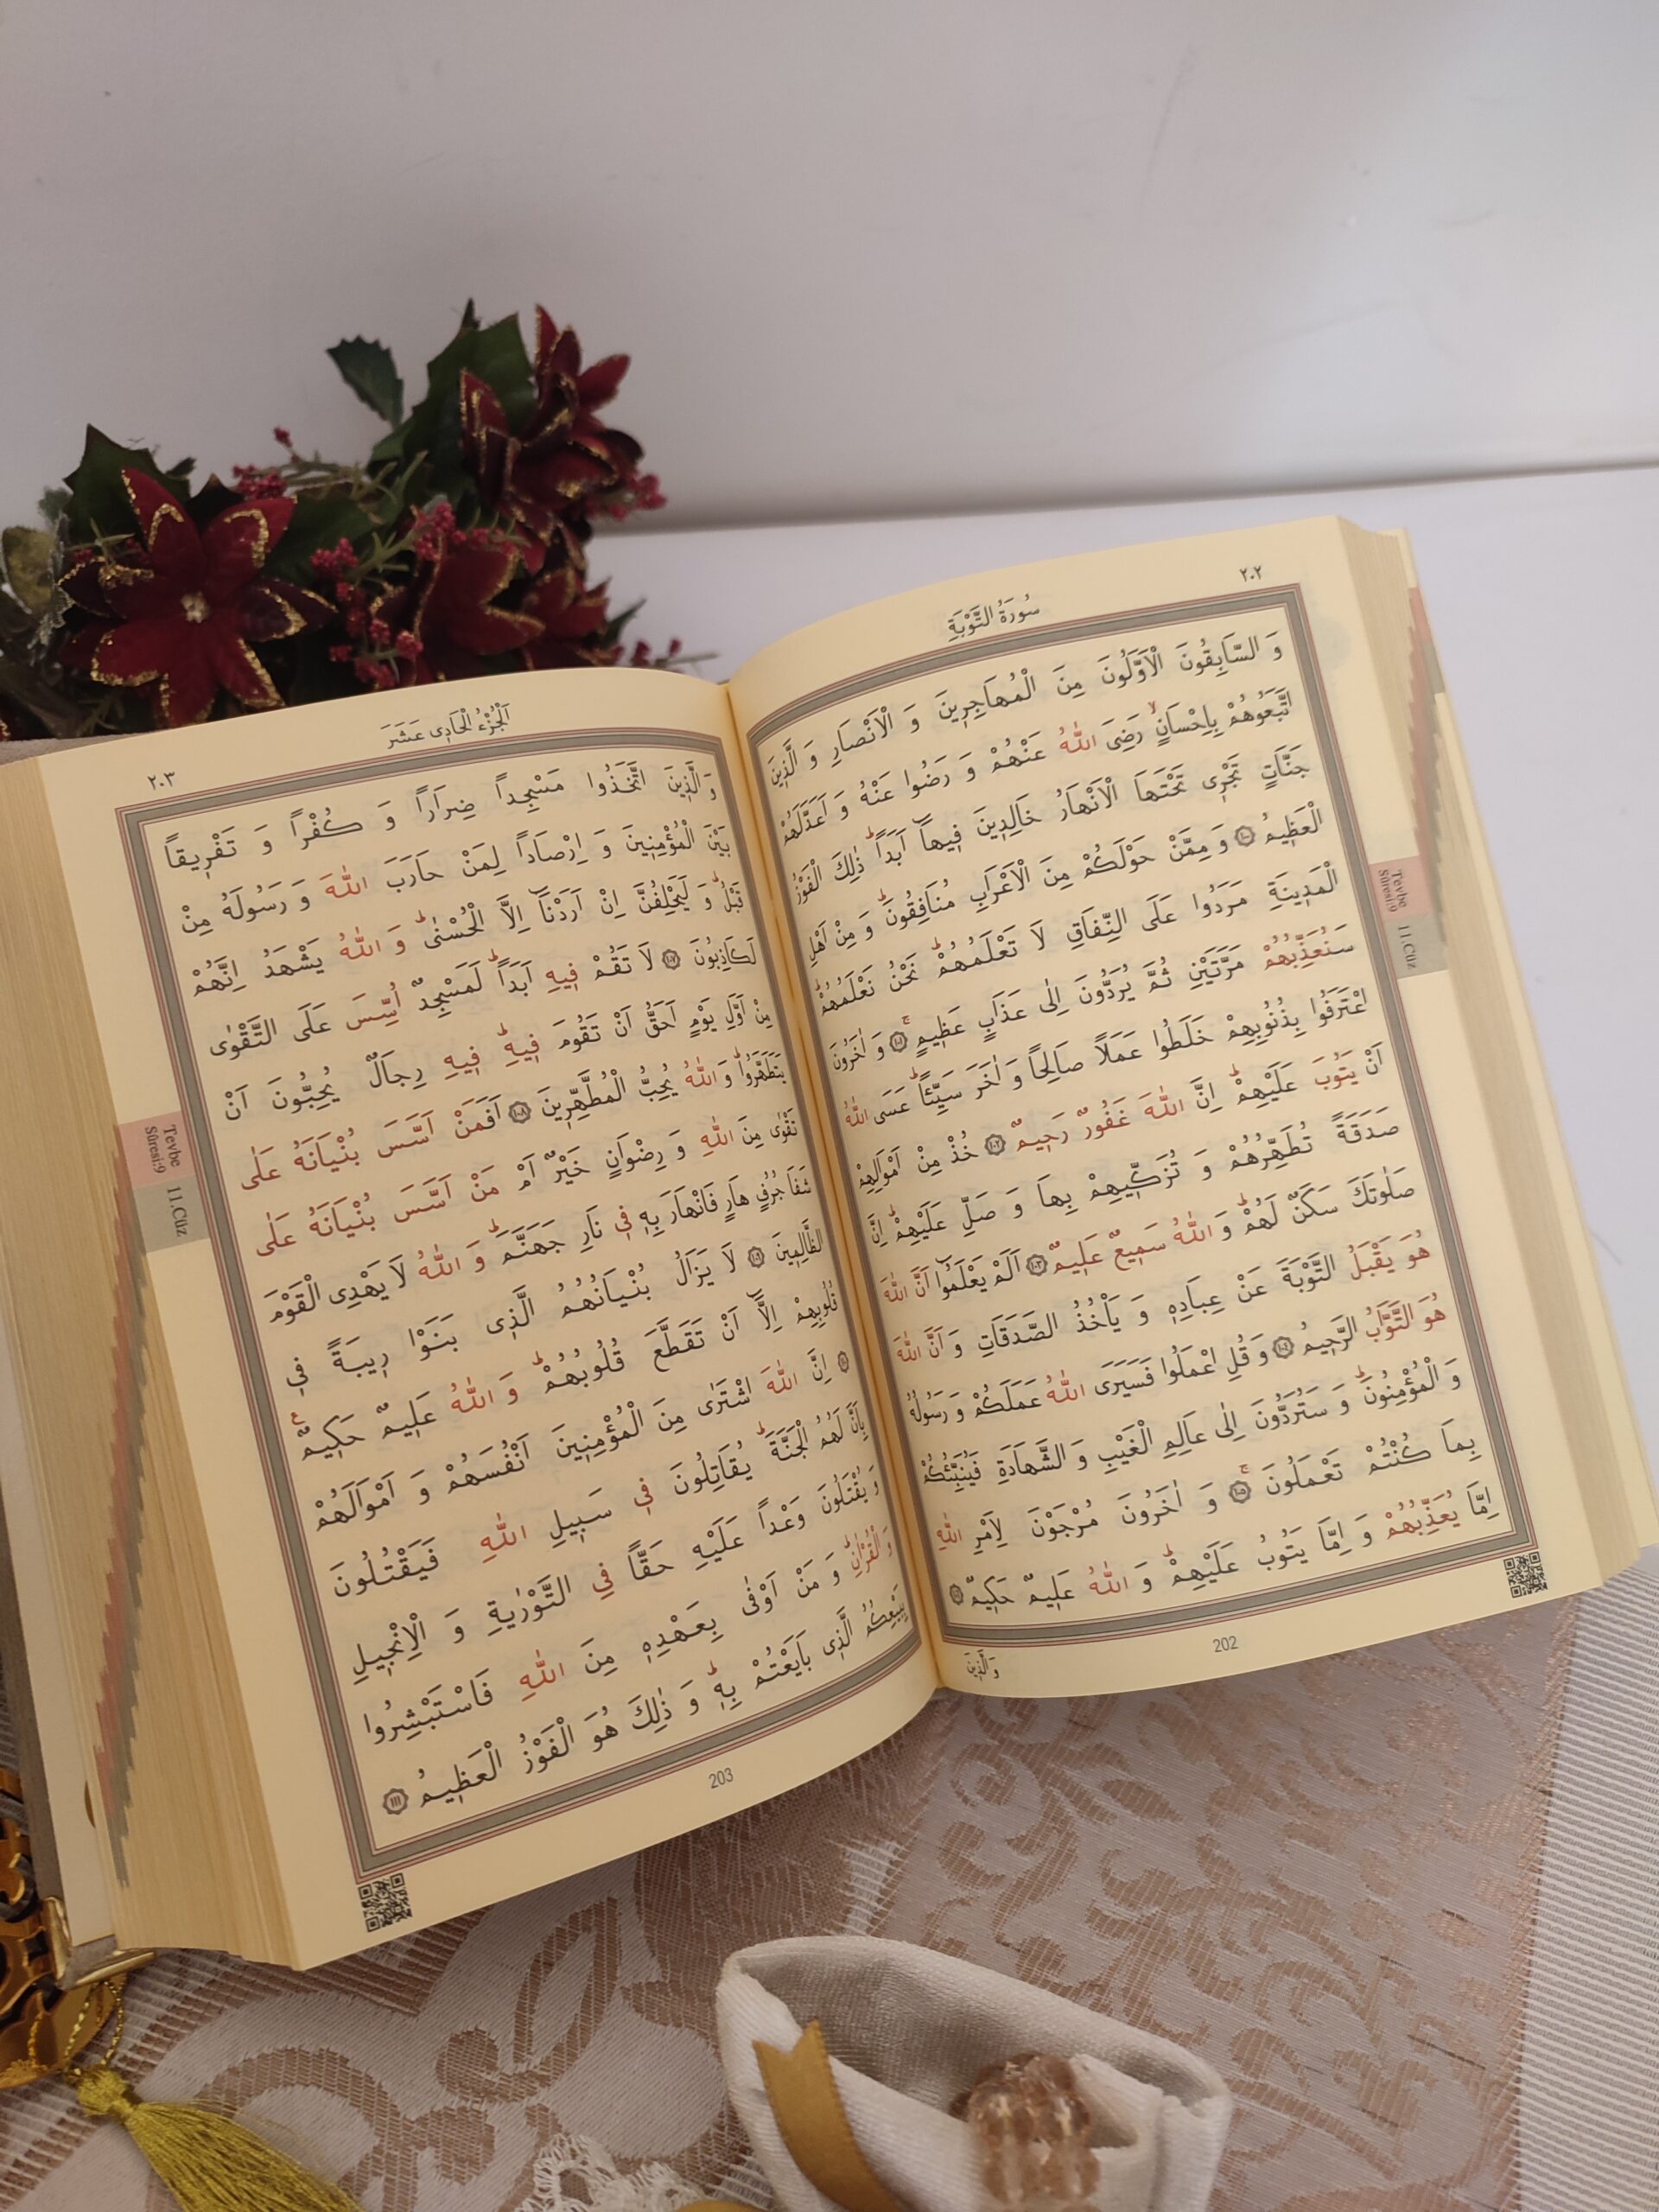 ٢٠٢
سُورَةُ التَّوْبَةِ
وَ السَّابِقُونَ الْاَوَّلُونَ مِنَ الْمُهَاجِرِينَ وَ الْاَنْصَارِ وَ الَّذِينَ
اتَّبَعُوهُمْ بِاِحْسَانٍۙ رَضِىَ اللّٰهُ عَنْهُمْ وَ رَضُوا عَنْهُ وَ اَعَدَّ لَهُمْ
جَنَّاتٍ تَجْرِى تَحْتَهَا الْاَنْهَارُ خَالِدِينَ فِيهَٓا اَبَداًۜ ذٰلِكَ الْفَوْزُ
الْعَظِيمُ ﴿١٠٠﴾ وَ مِمَّنْ حَوْلَكُمْ مِنَ الْاَعْرَابِ مُنَافِقُونَۜ وَ مِنْ اَهْلِ
الْمَدِينَةِ مَرَدُوا عَلَى النِّفَاقِ لَا تَعْلَمُهُمْۜ نَحْنُ نَعْلَمُهُمْۜ
سَنُعَذِّبُهُمْ مَرَّتَيْنِ ثُمَّ يُرَدُّونَ اِلٰى عَذَابٍ عَظِيمٍۚ ﴿١٠١﴾ وَ اٰخَرُونَ
اعْتَرَفُوا بِذُنُوبِهِمْ خَلَطُوا عَمَلاً صَالِحاً وَ اٰخَرَ سَيِّئاًۜ عَسَى اللّٰهُ
اَنْ يَتُوبَ عَلَيْهِمْۜ اِنَّ اللّٰهَ غَفُورٌ رَحِيمٌ ﴿١٠٢﴾ خُذْ مِنْ اَمْوَالِهِمْ
صَدَقَةً تُطَهِّرُهُمْ وَ تُزَكِّيهِمْ بِهَا وَ صَلِّ عَلَيْهِمْۜ اِنَّ
صَلٰوتَكَ سَكَنٌ لَهُمْۜ وَ اللّٰهُ سَمِيعٌ عَلِيمٌ ﴿١٠٣﴾ اَلَمْ يَعْلَمُٓوا اَنَّ اللّٰهَ
هُوَ يَقْبَلُ التَّوْبَةَ عَنْ عِبَادِهِ وَ يَاْخُذُ الصَّدَقَاتِ وَ اَنَّ اللّٰهَ
هُوَ التَّوَّابُ الرَّحِيمُ ﴿١٠٤﴾ وَ قُلِ اعْمَلُوا فَسَيَرَى اللّٰهُ عَمَلَكُمْ وَ رَسُولُهُ
وَ الْمُؤْمِنُونَۜ وَ سَتُرَدُّونَ اِلٰى عَالِمِ الْغَيْبِ وَ الشَّهَادَةِ فَيُنَبِّئُكُمْ
بِمَا كُنْتُمْ تَعْمَلُونَۚ ﴿١٠٥﴾ وَ اٰخَرُونَ مُرْجَوْنَ لِاَمْرِ اللّٰهِ
اِمَّا يُعَذِّبُهُمْ وَ اِمَّا يَتُوبُ عَلَيْهِمْۜ وَ اللّٰهُ عَلِيمٌ حَكِيمٌ ﴿١٠٦﴾
وَ الَّذِينَ
202
Tevbe
Sûresi:9
11.Cüz
اَلْجُزْءُ الْحَادِى عَشَرَ
٢٠٣
وَ الَّذِينَ اتَّخَذُوا مَسْجِداً ضِرَاراً وَ كُفْراً وَ تَفْرِيقاً
بَيْنَ الْمُؤْمِنِينَ وَ اِرْصَاداً لِمَنْ حَارَبَ اللّٰهَ وَ رَسُولَهُ مِنْ
قَبْلُۜ وَ لَيَحْلِفُنَّ اِنْ اَرَدْنَٓا اِلَّا الْحُسْنٰىۜ وَ اللّٰهُ يَشْهَدُ اِنَّهُمْ
لَكَاذِبُونَ ﴿١٠٧﴾ لَا تَقُمْ فِيهِ اَبَداًۜ لَمَسْجِدٌ اُسِّسَ عَلَى التَّقْوٰى
مِنْ اَوَّلِ يَوْمٍ اَحَقُّ اَنْ تَقُومَ فِيهِۜ فِيهِ رِجَالٌ يُحِبُّونَ اَنْ
يَتَطَهَّرُواۜ وَ اللّٰهُ يُحِبُّ الْمُطَّهِّرِينَ ﴿١٠٨﴾ اَفَمَنْ اَسَّسَ بُنْيَانَهُ عَلٰى
تَقْوٰى مِنَ اللّٰهِ وَ رِضْوَانٍ خَيْرٌ اَمْ مَنْ اَسَّسَ بُنْيَانَهُ عَلٰى
شَفَا جُرُفٍ هَارٍ فَانْهَارَ بِهِ فِى نَارِ جَهَنَّمَۜ وَ اللّٰهُ لَا يَهْدِى الْقَوْمَ
الظَّالِمِينَ ﴿١٠٩﴾ لَا يَزَالُ بُنْيَانُهُمُ الَّذِى بَنَوْا رِيبَةً فِى
قُلُوبِهِمْ اِلَّٓا اَنْ تَقَطَّعَ قُلُوبُهُمْۜ وَ اللّٰهُ عَلِيمٌ حَكِيمٌ۟
﴿١١٠﴾ اِنَّ اللّٰهَ اشْتَرٰى مِنَ الْمُؤْمِنِينَ اَنْفُسَهُمْ وَ اَمْوَالَهُمْ
بِاَنَّ لَهُمُ الْجَنَّةَۜ يُقَاتِلُونَ فِى سَبِيلِ اللّٰهِ فَيَقْتُلُونَ
وَ يُقْتَلُونَ وَعْداً عَلَيْهِ حَقًّا فِى التَّوْرٰيةِ وَ الْاِنْجِيلِ
وَ الْقُرْاٰنِۜ وَ مَنْ اَوْفٰى بِعَهْدِهِ مِنَ اللّٰهِ فَاسْتَبْشِرُوا
بِبَيْعِكُمُ الَّذِى بَايَعْتُمْ بِهِۜ وَ ذٰلِكَ هُوَ الْفَوْزُ الْعَظِيمُ ﴿١١١﴾
203
Tevbe
Sûresi:9
11.Cüz